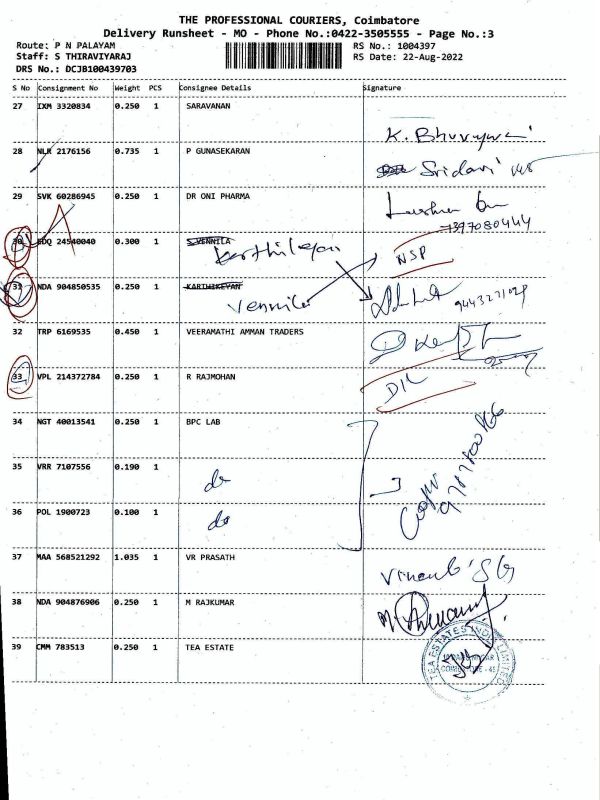 THE PROFESSIONAL COURIERS, Coimbatore
Delivery Runsheet - MO - Phone No.:0422-3505555 - Page No.:3
Route: P N PALAYAM RS No.: 1004397
Staff: S THIRAVIYARAJ RS Date: 22-Aug-2022
DRS No.: DCJB100439703
S No Consignment No Weight PCS Consignee Details Signature
27 IXM 3320834 0.250 1 SARAVANAN
28 NLR 2176156 0.735 1 P GUNASEKARAN
Sridavi
29 SVK 60286945 0.250 1 DR ONI PHARMA
30 BDQ 24540040 0.300 1 S VENNILA
Karthikeyan NSP
31 NDA 904850535 0.250 1 KARTHIKEYAN
Vennila
32 TRP 6169535 0.450 1 VEERAMATHI AMMAN TRADERS
33 VPL 214372784 0.250 1 R RAJMOHAN
D/L
34 NGT 40013541 0.250 1 BPC LAB
35 VRR 7107556 0.190 1
do
36 POL 1900723 0.100 1
do
37 MAA 568521292 1.035 1 VR PRASATH
38 NDA 904876906 0.250 1 M RAJKUMAR
39 CMM 783513 0.250 1 TEA ESTATE
TEA ESTATES INDIA LIMITED